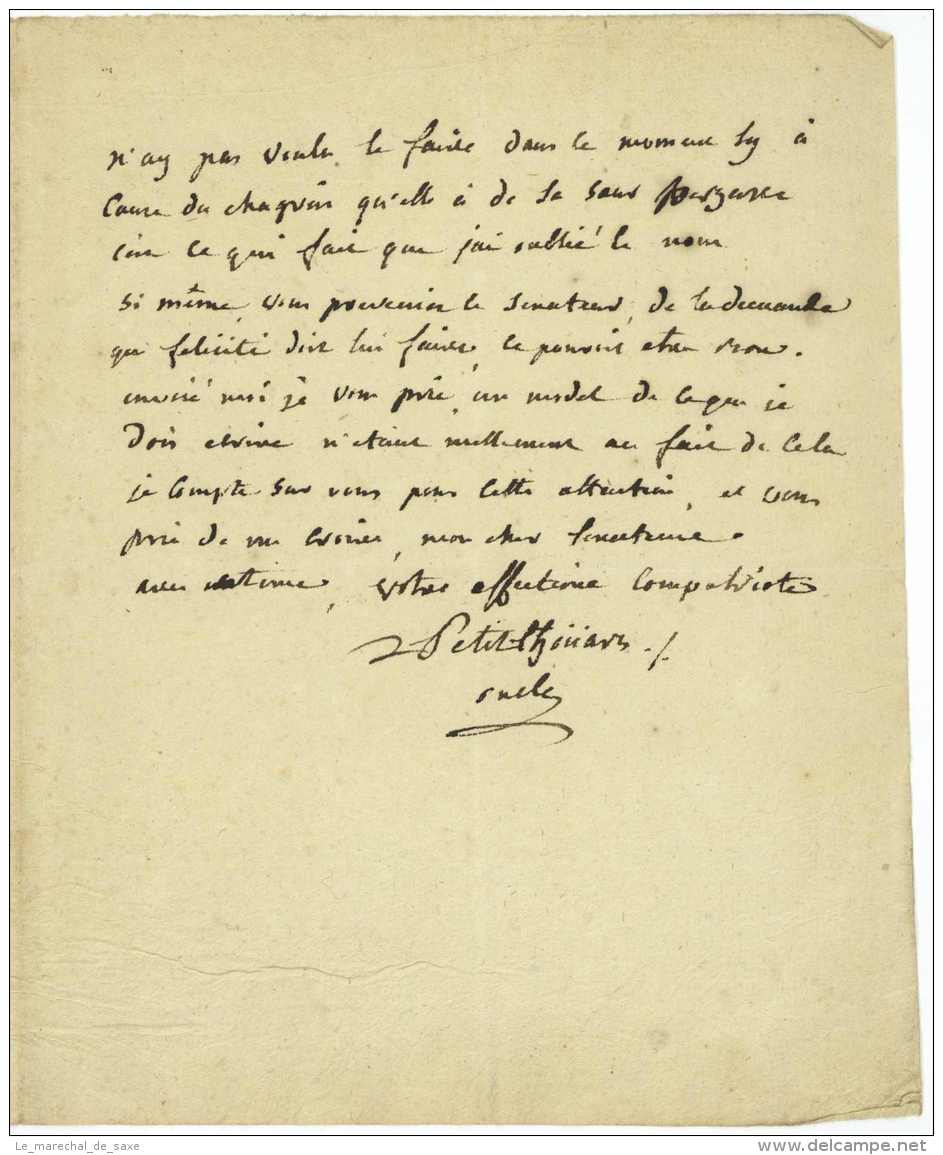 n'ay pas voulu le faire dans le moment sy à
Cause du chagrin qu'elle à de sa sœur
ce qui fait que j'ai oublié le nom
si même vous pouveniez le senateur, de la demande
que felicité doit lui faire, ce pouroit etre bon.
envoié moi je vous prie, un model de ce que je
dois ecrire n'etant nullement au fait de cela
je Compte sur vous pour cette attention, et vous
prie de me croire, mon cher senateur.
avec estime, votre affectioné Compatriote
Petit thoüars ./.
oncle
Le_marechal_de_saxe
www.delcampe.net